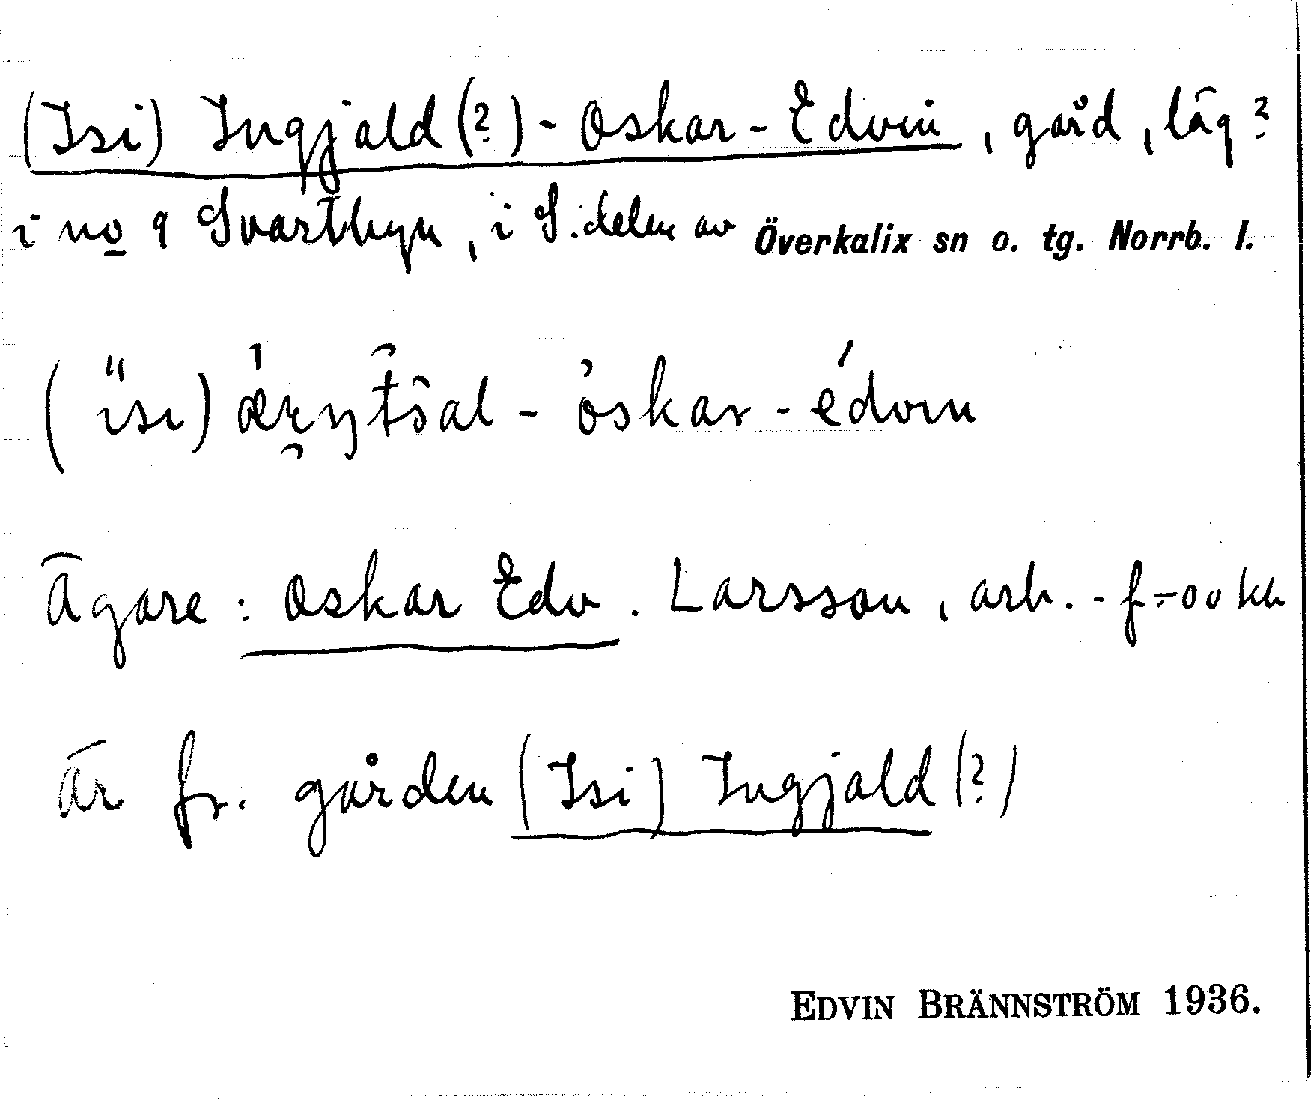 (Isi) Ingjald(?)-Oskar-Edvin, gård, läg?
i no 9 Svartbyn, i S. delen av Överkalix sn o. tg. Norrb. l.
Ägare: Oskar Edv. Larsson, arb. -
är fr. gården (Isi) Ingjald(?)
EDVIN BRÄNNSTRÖM 1936.